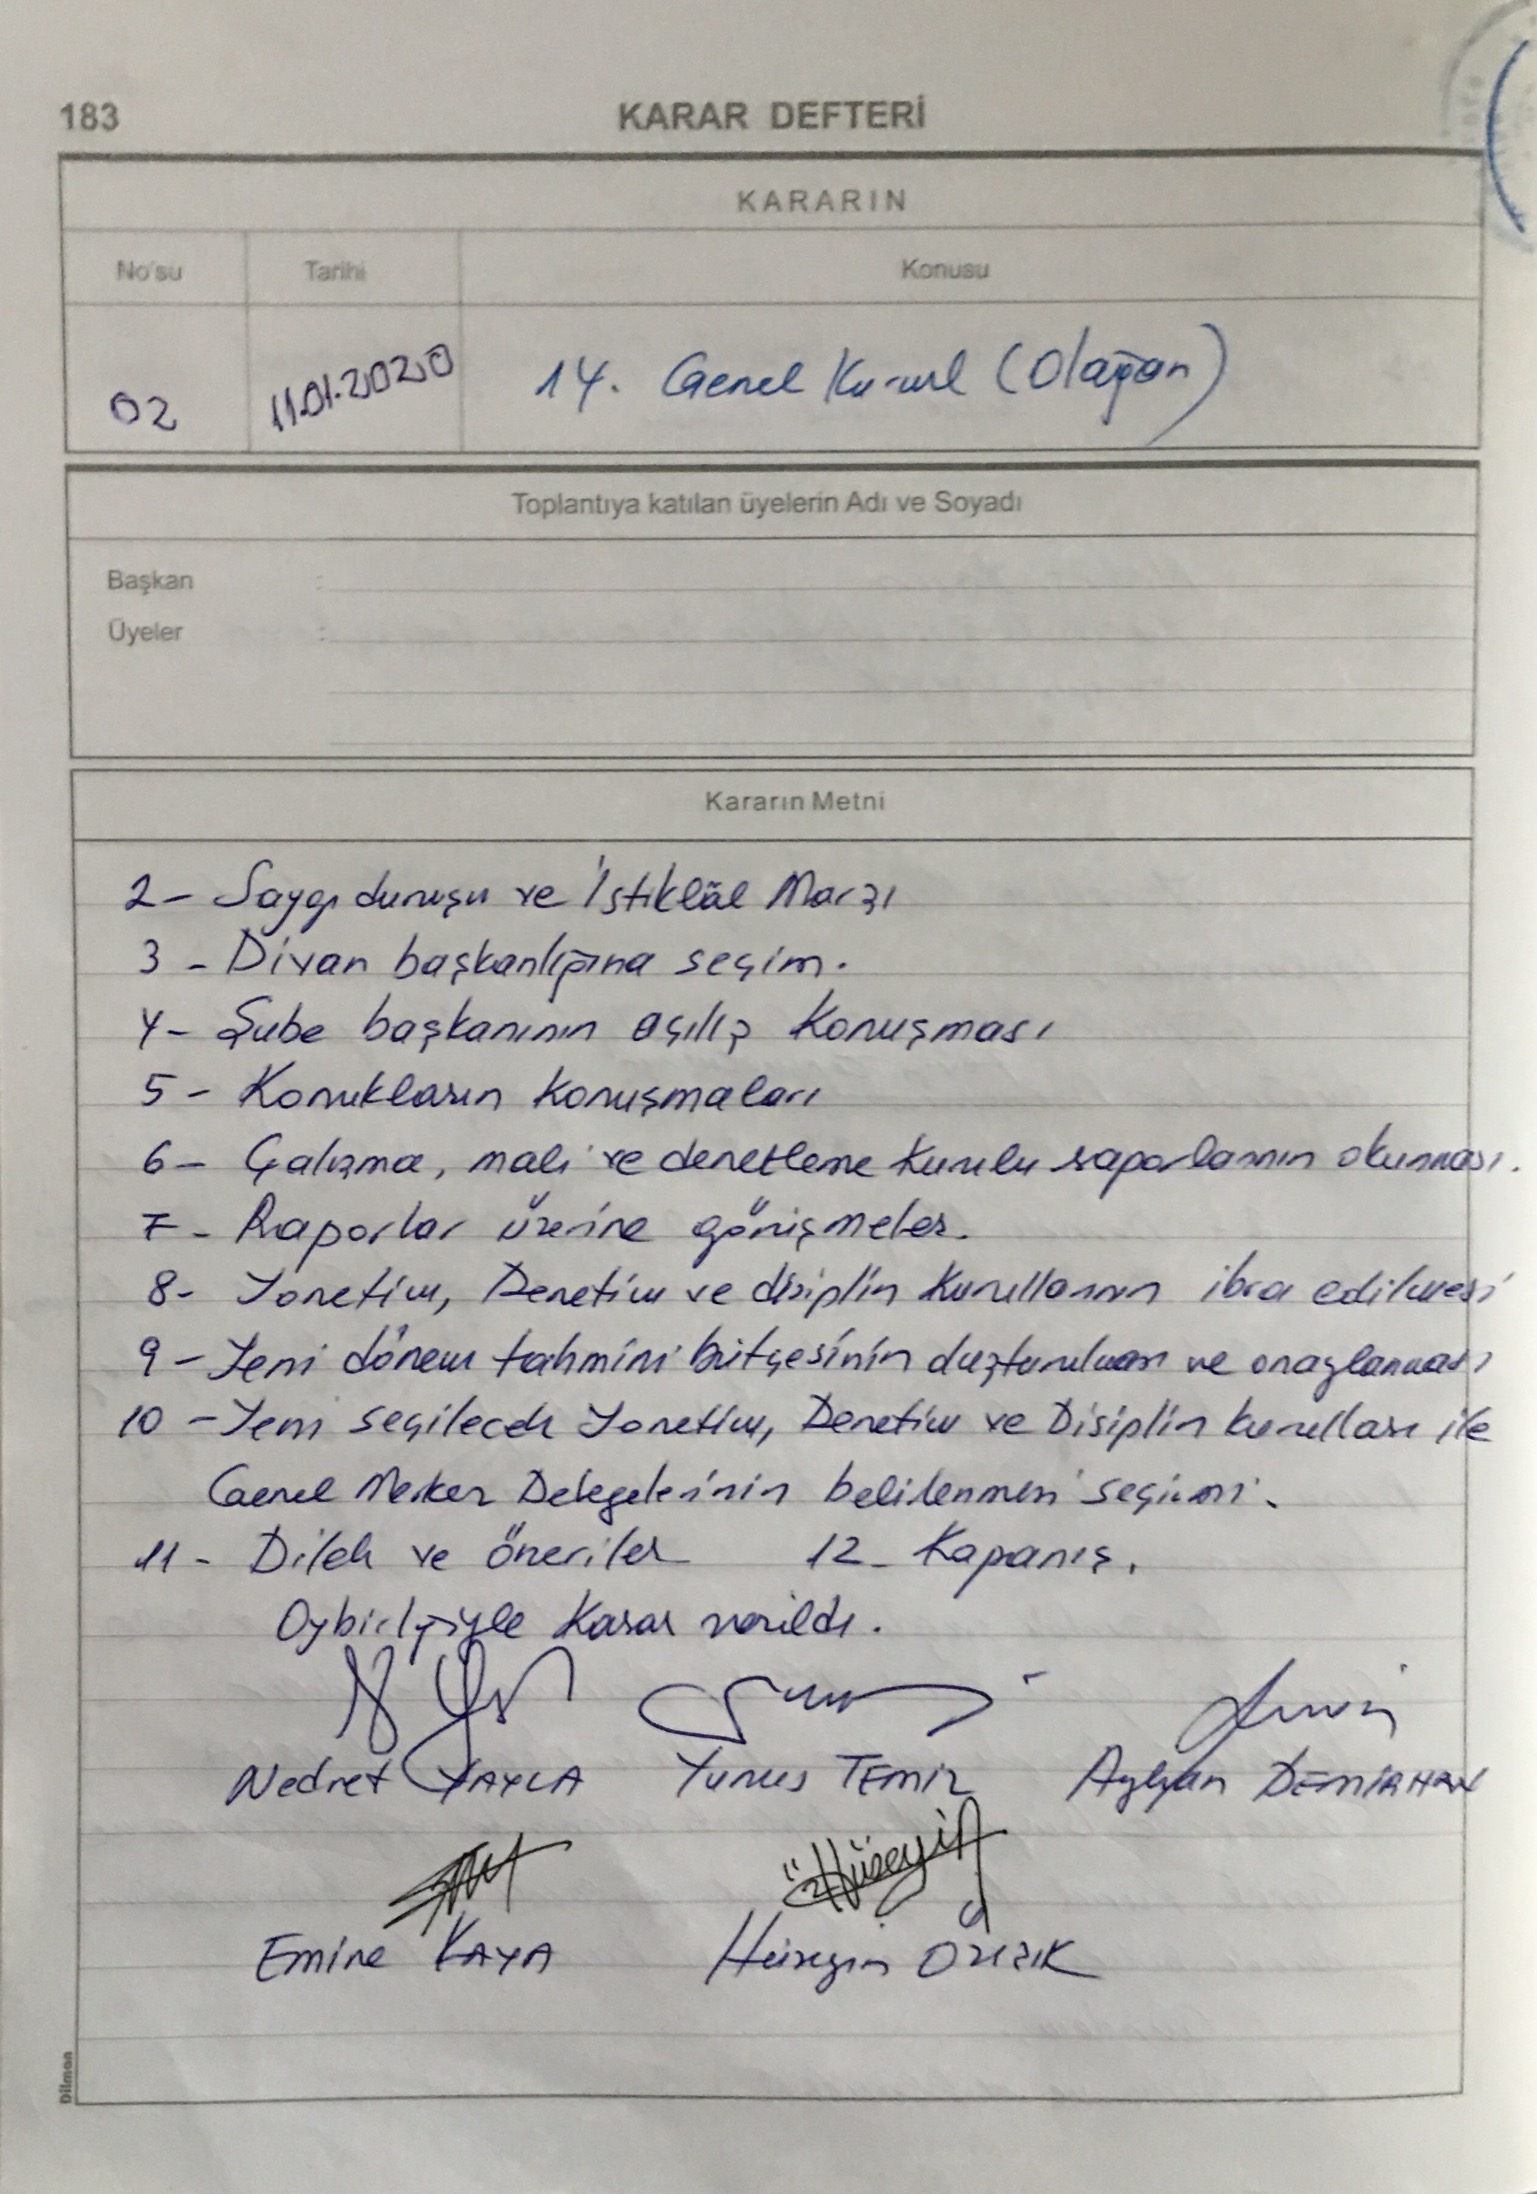 183
KARAR DEFTERİ
KARARIN
No'su Tarihi Konusu
02 11.01.2020 14. Genel Kurul (Olağan)
Toplantıya katılan üyelerin Adı ve Soyadı
Başkan :
Üyeler :
Kararın Metni
2- Saygı duruşu ve İstiklâl Marşı
3- Divan başkanlığına seçim.
4- Şube başkanının açılış konuşması
5- Konukların konuşmaları
6- Çalışma, mali ve denetleme kurulu raporlarının okunması.
7- Raporlar üzerine görüşmeler.
8- Yönetim, Denetim ve disiplin kurullarının ibra edilmesi
9- Yeni dönem tahmini bütçesinin oluşturulması ve onaylanması
10- Yeni seçilecek Yönetim, Denetim ve Disiplin kurulları ile
Genel Merkez Delegelerinin belirlenmesi seçimi.
11- Dilek ve öneriler 12- Kapanış.
Oybirliğiyle karar verildi.
Nedret YAYLA Yunus TEMİZ Ayhan DEMİRHAN
Hüseyin
Emine KAYA Hüseyin
Dilman